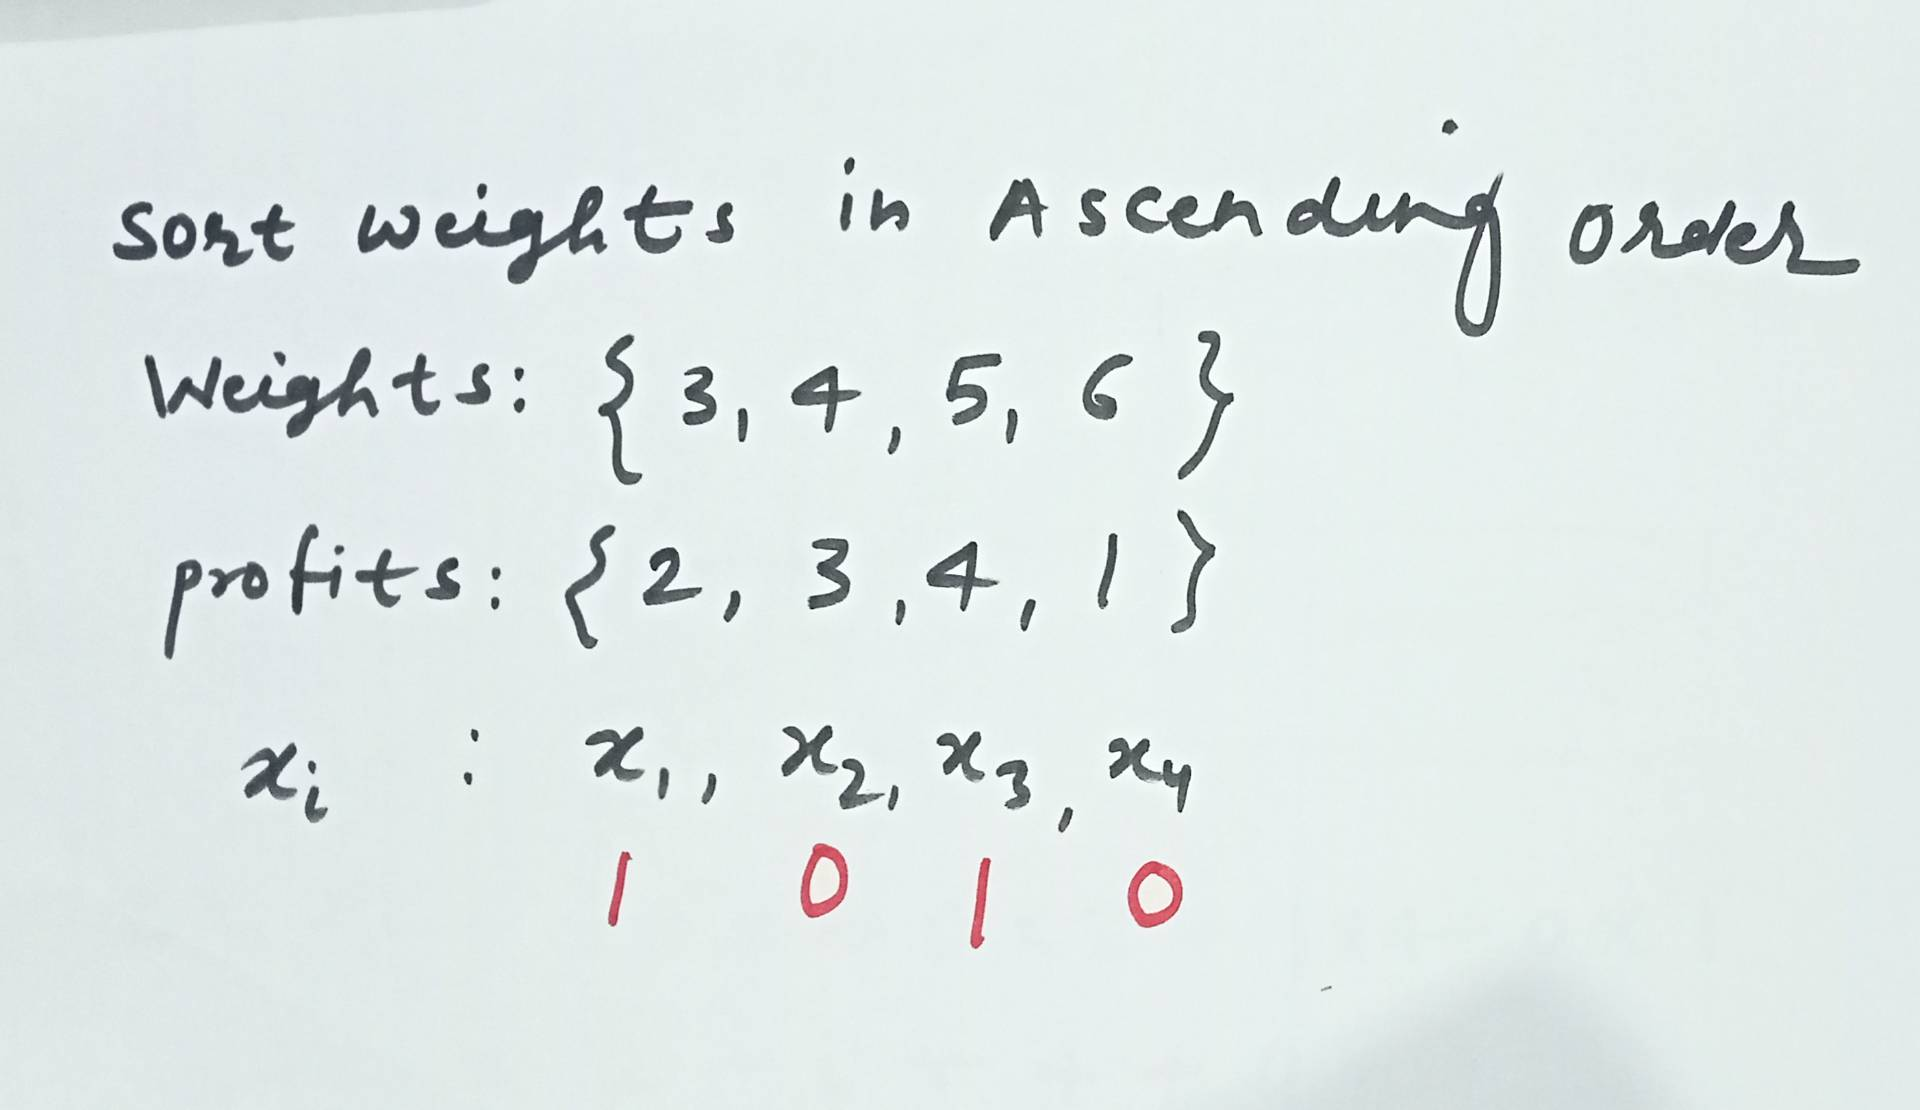 Sort weights in Ascending order
Weights: { 3, 4, 5, 6 }
profits: { 2, 3, 4, 1 }
xi : x1, x2, x3, x4
1 0 1 0